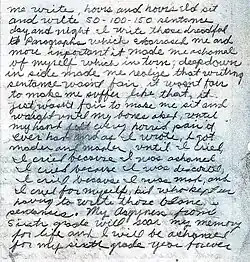 me write, hours and hours Id sit
and write 50-100-150 sentence
day and night I write those dreadful
Paragraphs which embarrased me and
more important it made me ashamed
of myself which in turn; deep down
in side made me realize that writing
sentance wasnt fair it wasnt fair
to make me suffer like that, it
just wasnt fair to make me sit and
wright until my bones aked, until
my hand felt every period pain I
ever had and as I wrote, I got
mader and mader until I cried
I cried because I was ashamed
I cried because I was discusted,
I cried because I was mad, and
I cried for myself, kid who kept on
having to write those
sentences. My Angryness from
Sixth grade will scar my memory
for life and I will be ashamed
for my sixth grade year forever